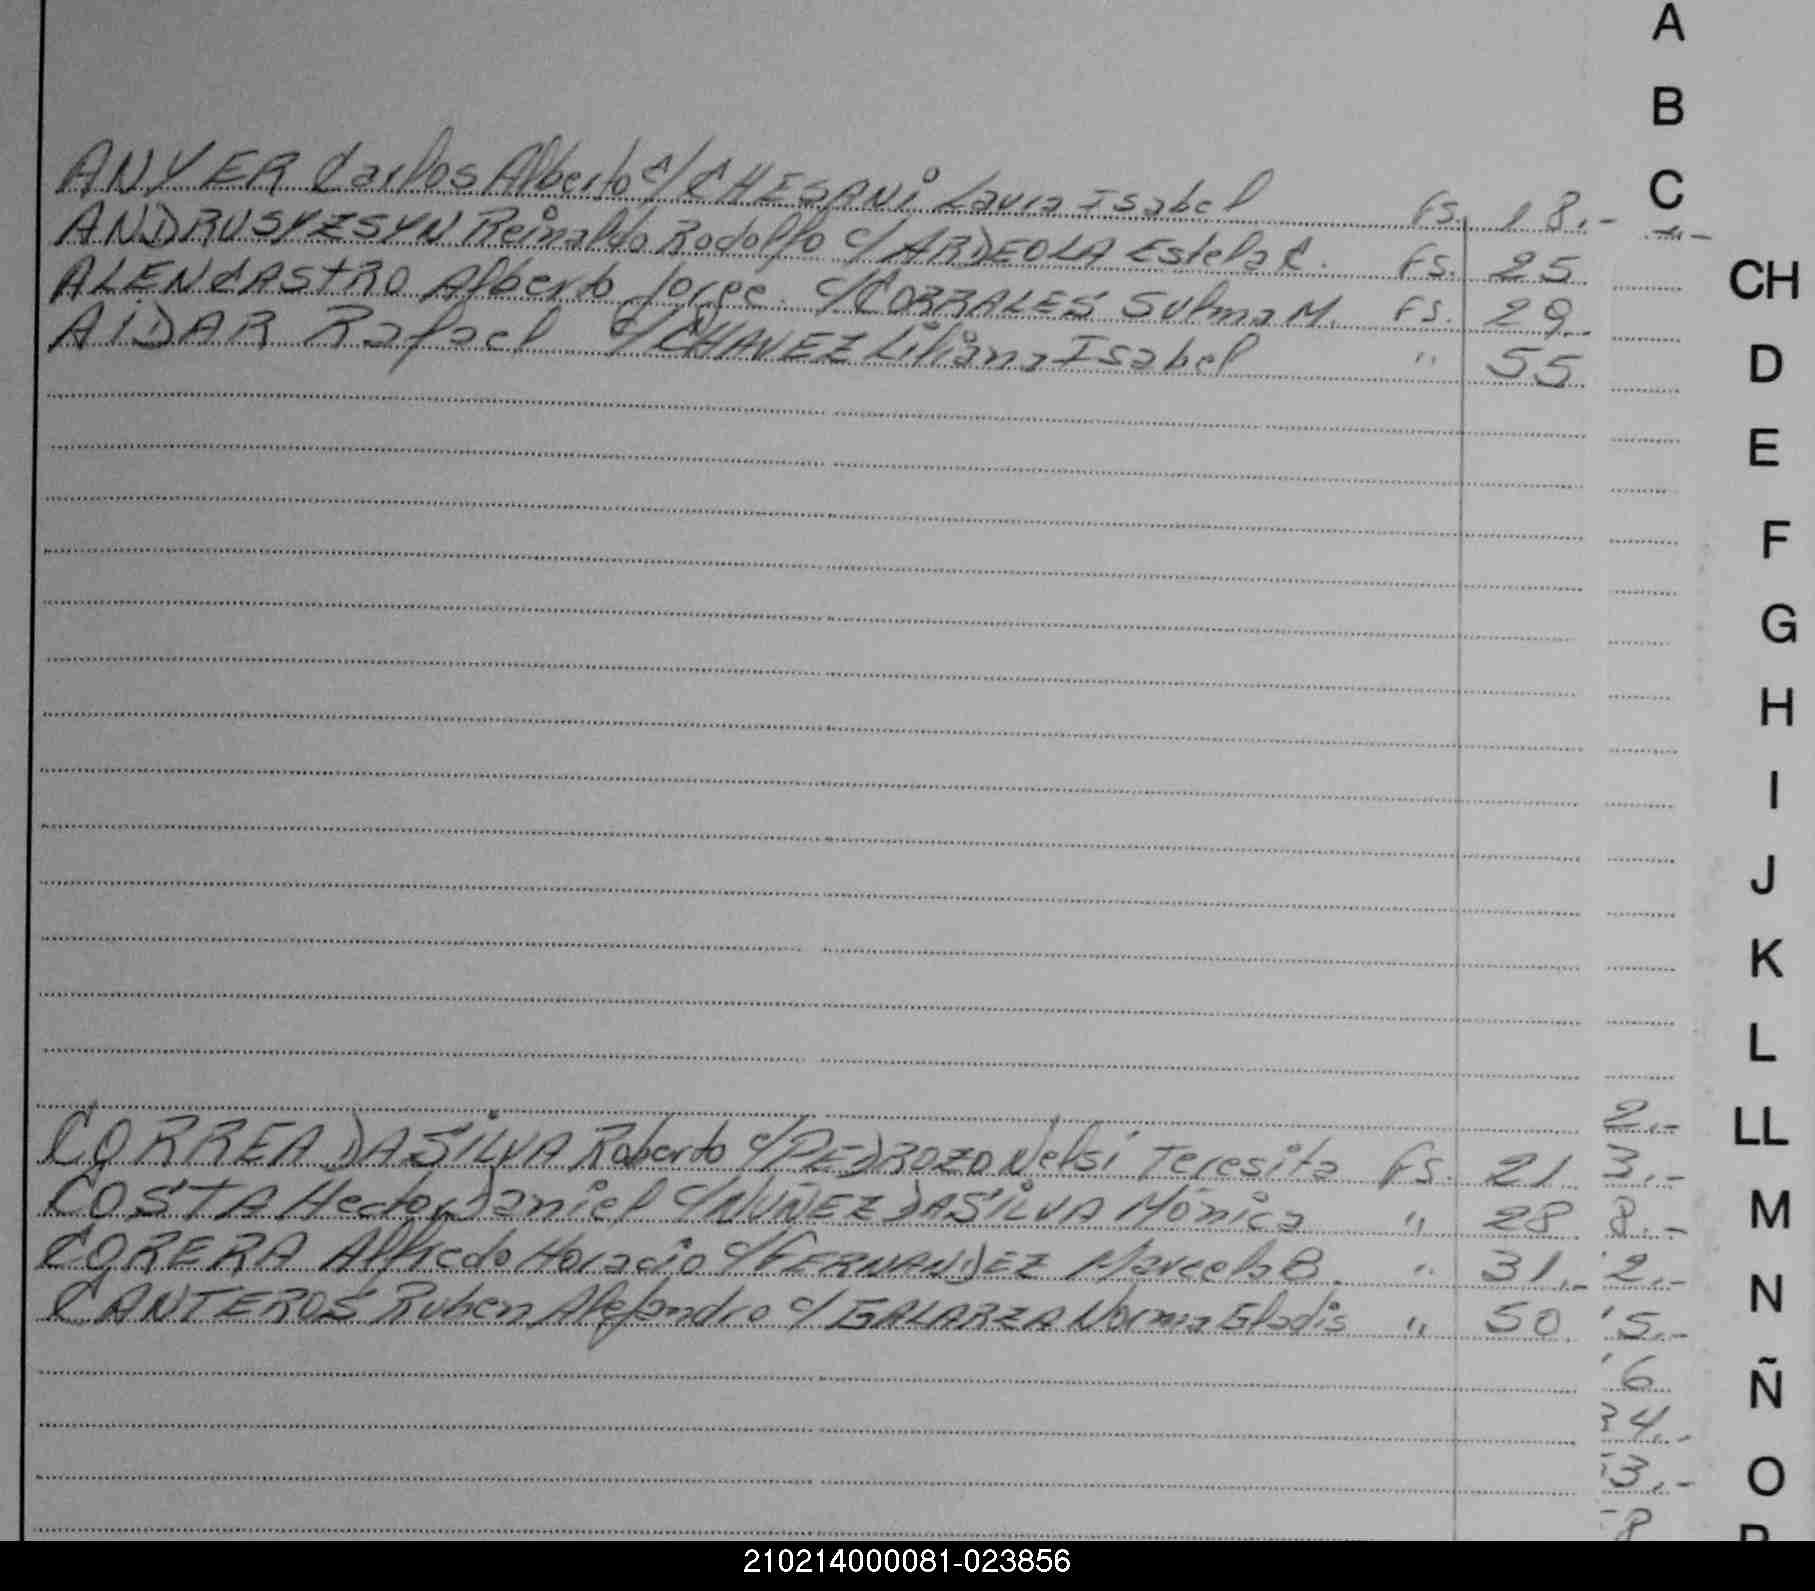 A
B
C
ANYER Carlos Alberto c/ CHESANi Laura Isabel Fs. 18.-
ANDRUSYZSYN Reinaldo Rodolfo c/ ARDEOLA Estela C. Fs. 25
ALENCASTRO Alberto Jorge c/ CORRALES Sulma M. Fs. 29.-
AiDAR Rafael c/ CHAVEZ Liliana Isabel " 55
CH
D
E
F
G
H
I
J
K
L
LL
M
N
Ñ
O
2.-
CORREA DASiLVA Roberto c/ PEDROZO Nelsi Teresita Fs. 21 3.-
COSTA Hector Daniel c/ NUÑEZ DASiLVA Mónica " 28 8.-
CORERA Alfredo Horacio c/ FERNANDEZ Marcela B. " 31.- 2.-
CANTEROS Ruben Alejandro c/ GALARZA Norma Gladis " 50. 5.-
6
4.-
3.-
8
210214000081-023856